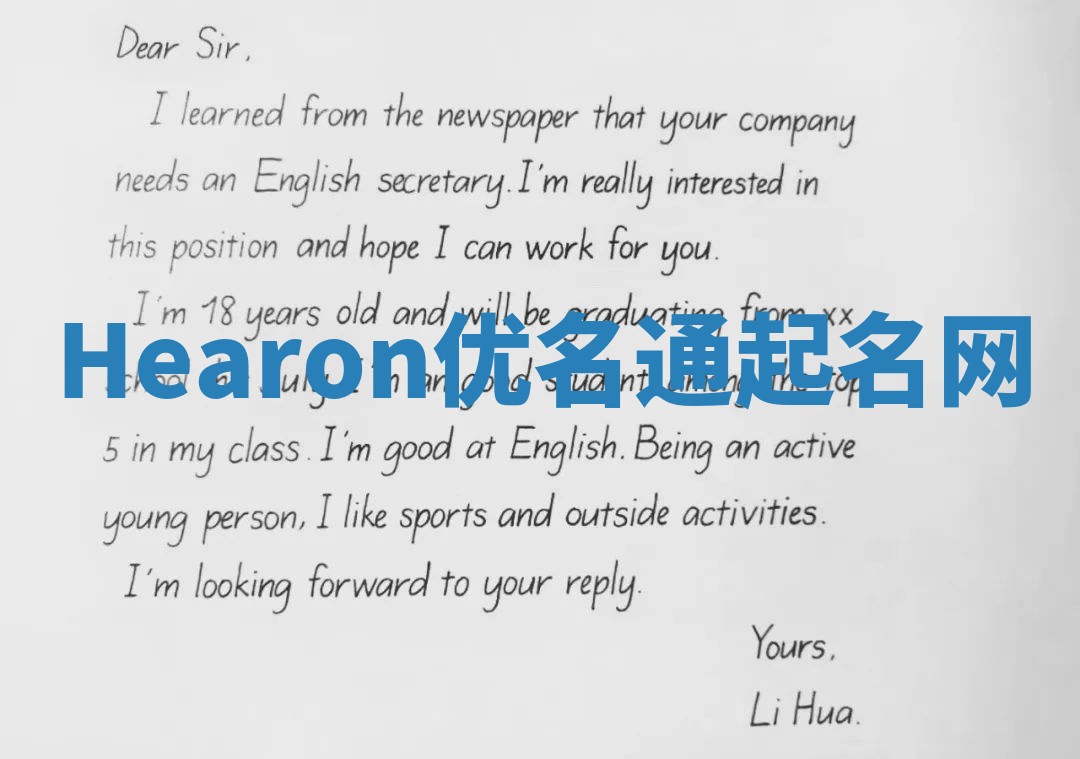 Dear Sir,
I learned from the newspaper that your company
needs an English secretary. I'm really interested in
this position and hope I can work for you.
I'm 18 years old and will be graduating from xx
Hearon优名通起名网
school July I'm an good student, among the top
5 in my class. I'm good at English. Being an active
young person, I like sports and outside activities.
I'm looking forward to your reply.
Yours,
Li Hua.